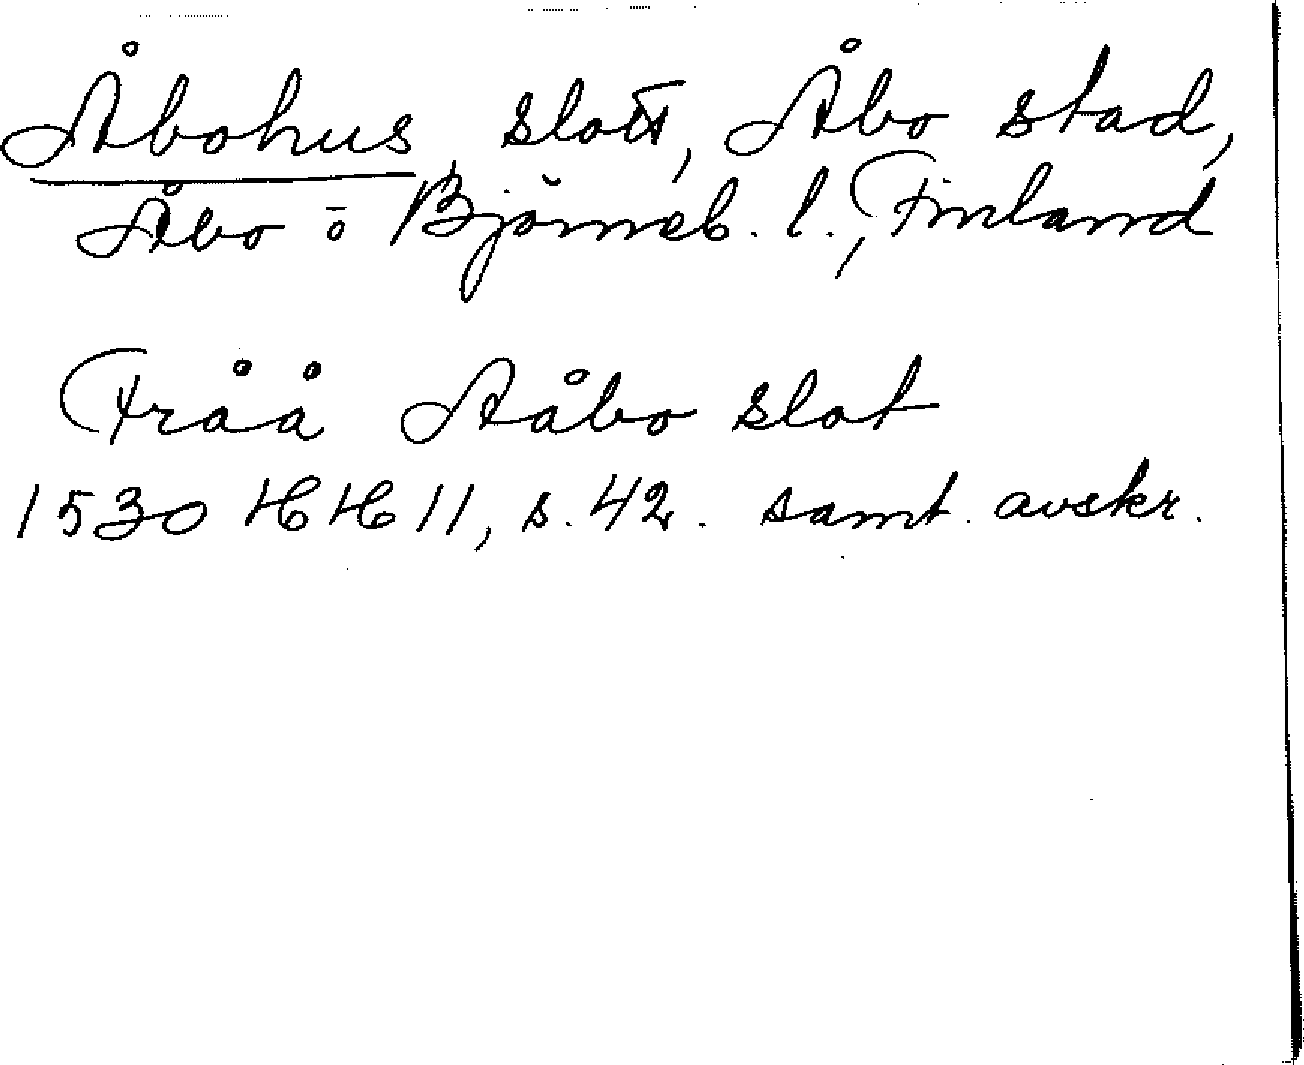 Åbohus, slott, Åbo stad,
Åbo o Björneb. l., Finland
Fråå Aåbo slot
1530 HH 11, s. 42. samt. avskr.